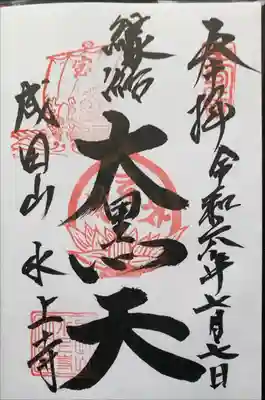 奉拝 令和六年七月七日
縁結
大黒天
成田山 水上寺